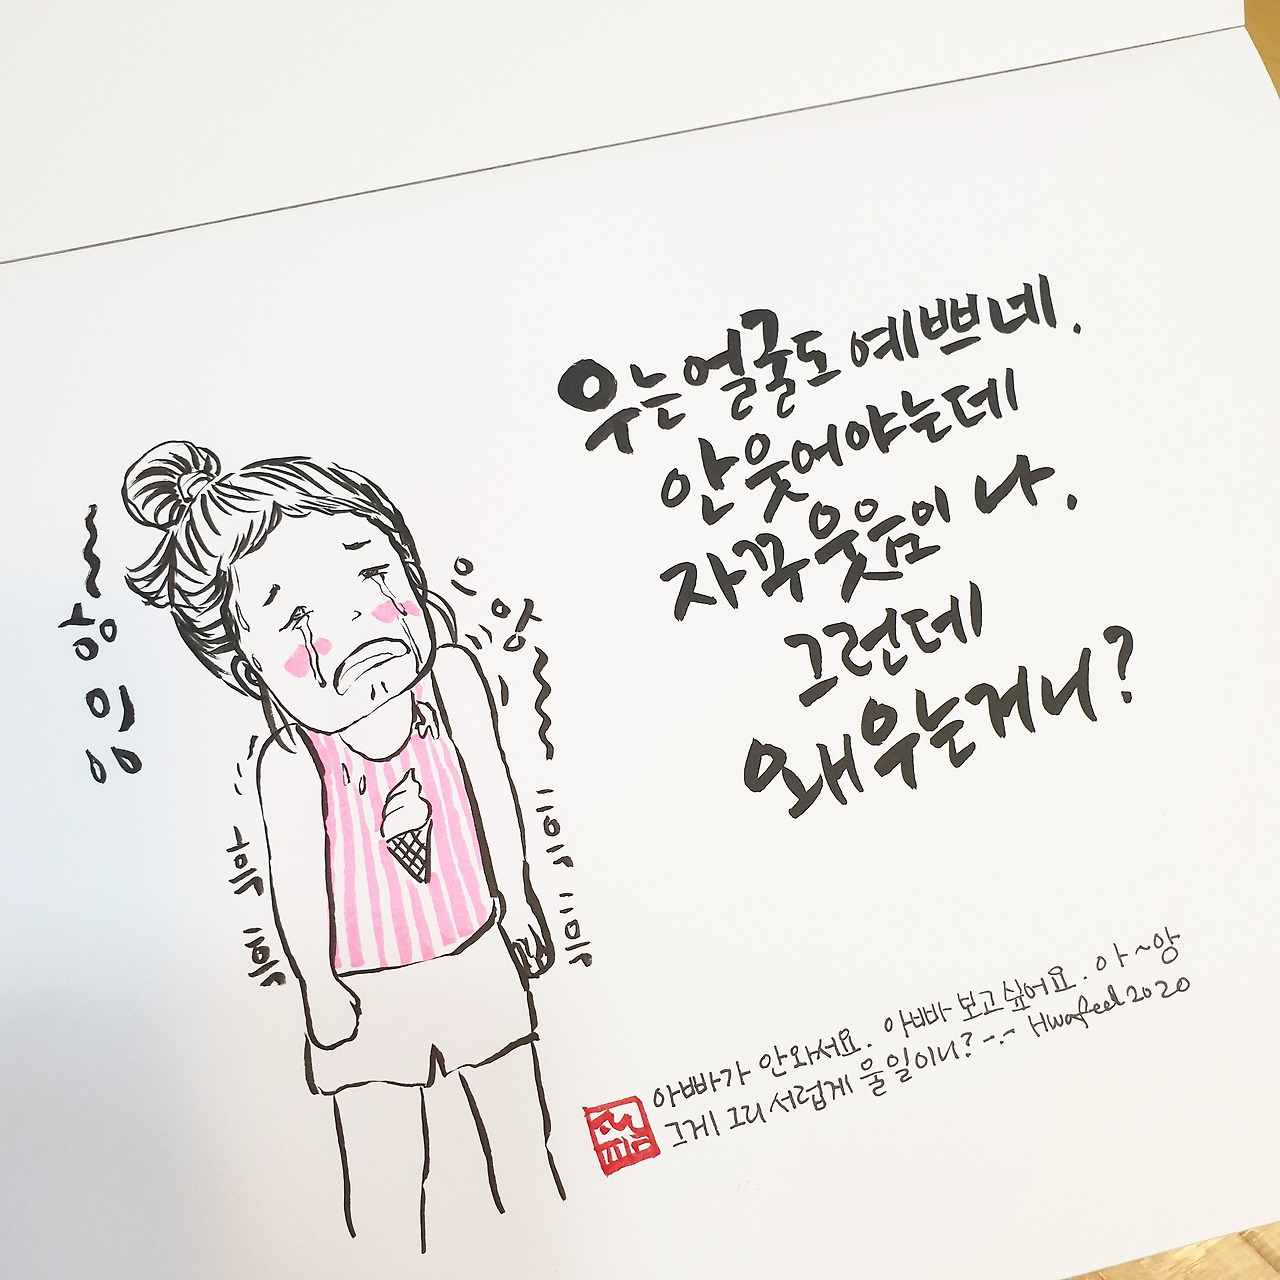 우는 얼굴도 예쁘네.
안 웃어야는데
자꾸 웃음이 나.
그런데
왜 우는거니?
으앙~
아빠가 안와서요. 아빠 보고싶어요. 아~앙
그게 그리 서럽게 울 일이니? -.- Hwafeel 2020